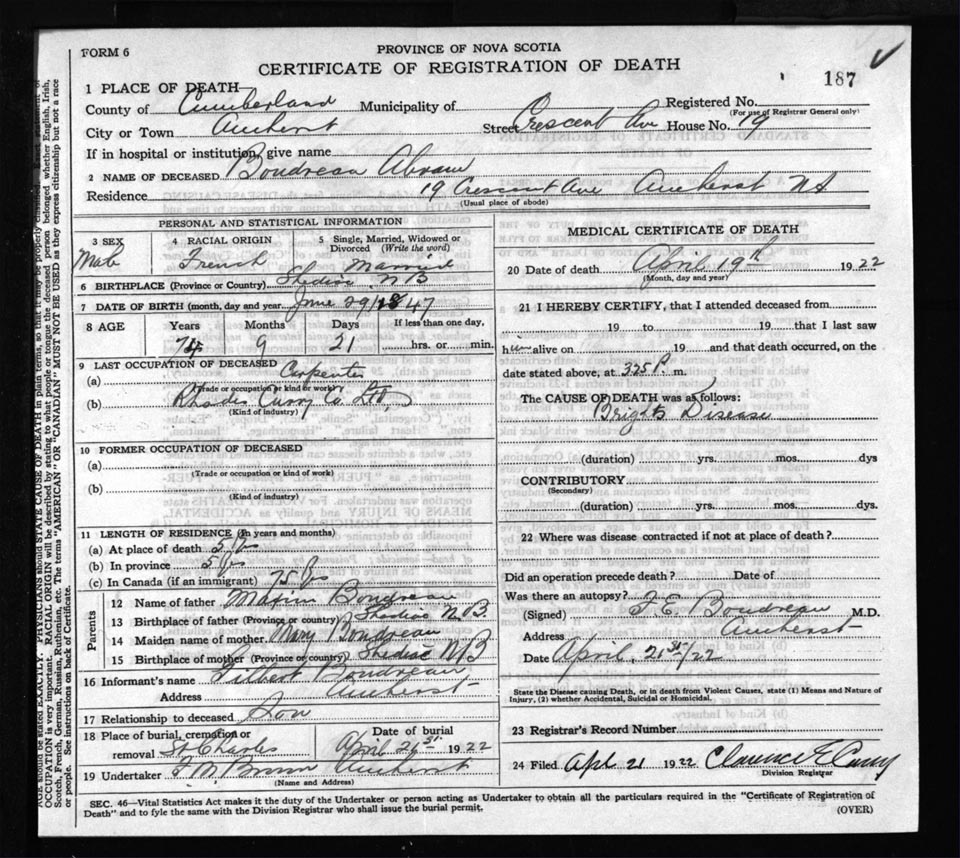 FORM 6
PROVINCE OF NOVA SCOTIA
CERTIFICATE OF REGISTRATION OF DEATH
187
1 PLACE OF DEATH
County of Cumberland Municipality of Registered No.
(For use of Registrar General only)
City or Town Amherst Street Crescent Ave House No. 19
If in hospital or institution, give name
2 NAME OF DECEASED Boudreau Abram
Residence 19 Crescent Ave Amherst NS
(Usual place of abode)
PERSONAL AND STATISTICAL INFORMATION
3 SEX Male
4 RACIAL ORIGIN French
5 Single, Married, Widowed or Divorced (Write the word) Married
6 BIRTHPLACE (Province or Country) Shediac N B
7 DATE OF BIRTH (month, day and year) June 29/1847
8 AGE Years Months Days If less than one day,
74 9 21 hrs. or min.
9 LAST OCCUPATION OF DECEASED
(a) Carpenter
(Trade or occupation or kind of work)
(b) Rhodes Curry Co. Ltd.
(Kind of industry)
10 FORMER OCCUPATION OF DECEASED
(a)
(Trade or occupation or kind of work)
(b)
(Kind of industry)
11 LENGTH OF RESIDENCE (in years and months)
(a) At place of death 5 yrs
(b) In province 5 yrs
(c) In Canada (if an immigrant) 75 yrs
Parents
12 Name of father Maxim Boudreau
13 Birthplace of father (Province or country) Shediac N.B.
14 Maiden name of mother Mary Boudreau
15 Birthplace of mother (Province or country) Shediac NB
16 Informant's name Boudreau
Address Amherst
17 Relationship to deceased Son
18 Place of burial, cremation or removal St Charles
Date of burial April 21st 1922
19 Undertaker Amherst
(Name and Address)
MEDICAL CERTIFICATE OF DEATH
20 Date of death April 19th 1922
(Month, day and year)
21 I HEREBY CERTIFY, that I attended deceased from
19 to 19 that I last saw
him alive on 19 and that death occurred, on the
date stated above, at 325 P. m.
The CAUSE OF DEATH was as follows:
Brights Disease
(duration) yrs. mos. dys
CONTRIBUTORY
(Secondary)
(duration) yrs. mos. dys.
22 Where was disease contracted if not at place of death?
Did an operation precede death? Date of
Was there an autopsy?
(Signed) F. E. Boudreau M.D.
Address Amherst
Date April, 21st/22
State the Disease causing Death, or in death from Violent Causes, state (1) Means and Nature of
Injury, (2) whether Accidental, Suicidal or Homicidal.
23 Registrar's Record Number
24 Filed Apl. 21 1922 Clarence E Casey
Division Registrar
SEC. 46—Vital Statistics Act makes it the duty of the Undertaker or person acting as Undertaker to obtain all the particulars required in the "Certificate of Registration of
Death" and to fyle the same with the Division Registrar who shall issue the burial permit.
(OVER)
AGE should be stated EXACTLY. PHYSICIANS should STATE CAUSE OF DEATH in plain terms, so that it may be properly
OCCUPATION is very important. RACIAL ORIGIN will be described by stating to what people or tongue the deceased person belonged whether English, Irish,
Scotch, French, German, Russian, Ruthenian, etc. The terms "AMERICAN" or "CANADIAN" MUST NOT BE USED as they express citizenship but not a race
or people. See instructions on back of Certificate.